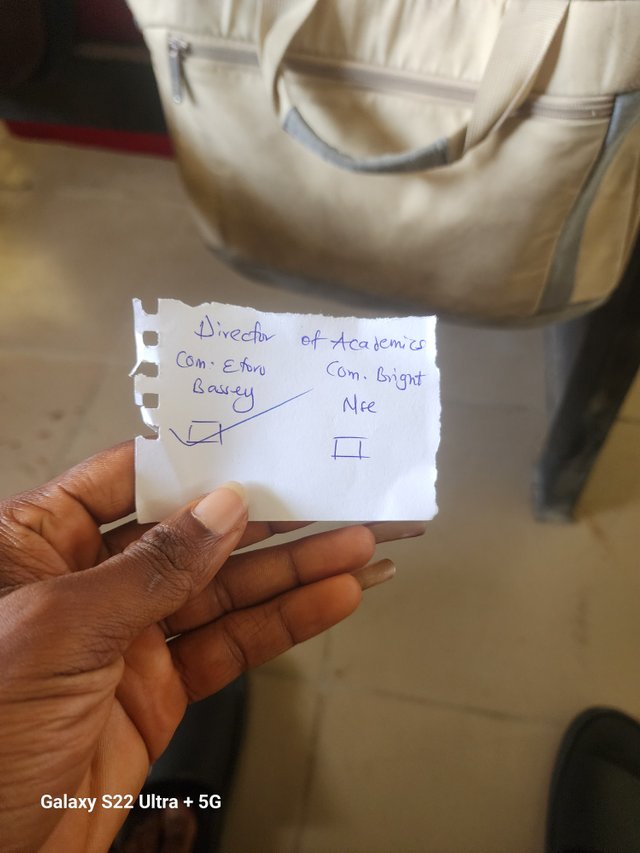 Director of Academics
Com. Eforo
Bassey
Com. Bright
Nse
Galaxy S22 Ultra + 5G